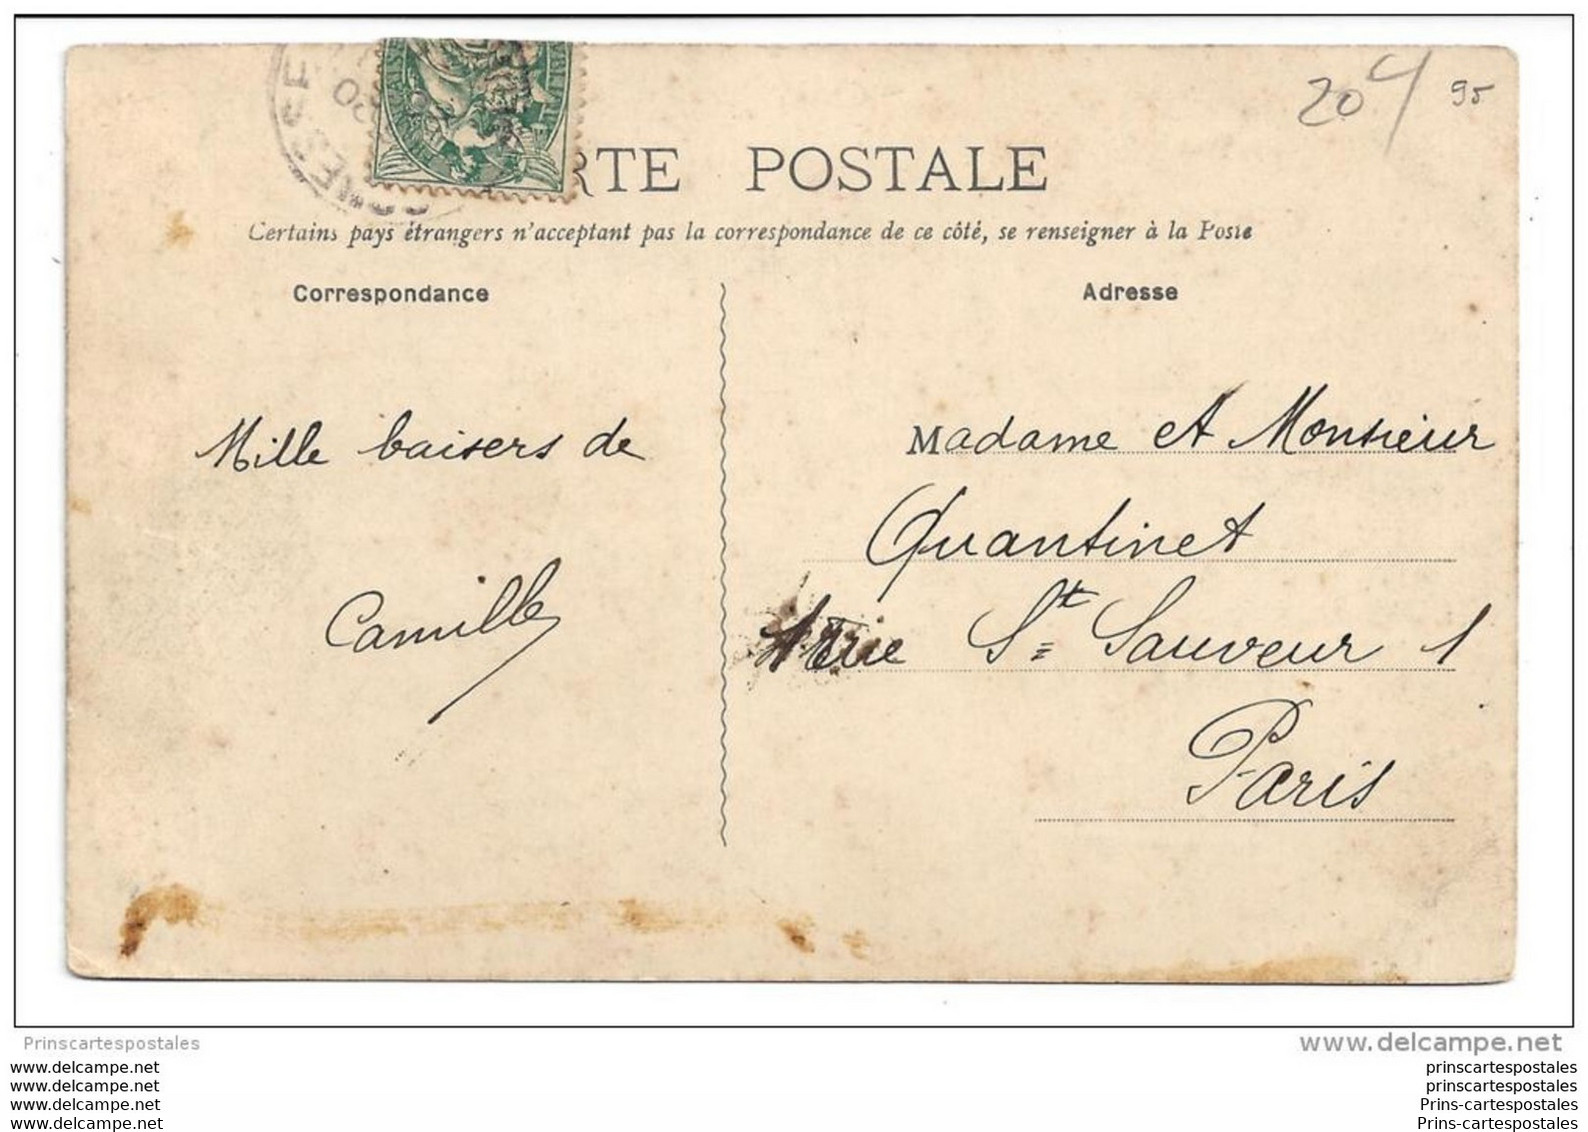 204 95
RTE POSTALE
Certains pays étrangers n'acceptant pas la correspondance de ce côté, se renseigner à la Poste
Correspondance
Adresse
Mille baisers de
Camille
Madame et Monsieur
Quantinet
rue St Sauveur 1
Paris
Prinscartespostales
www.delcampe.net
www.delcampe.net
www.delcampe.net
www.delcampe.net
www.delcampe.net
prinscartespostales
prinscartespostales
Prins-cartespostales
Prins-cartespostales